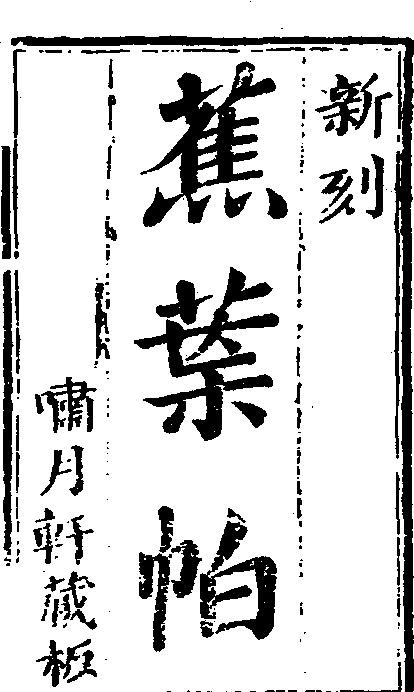 新刻
蕉葉帕
嘯月軒藏板